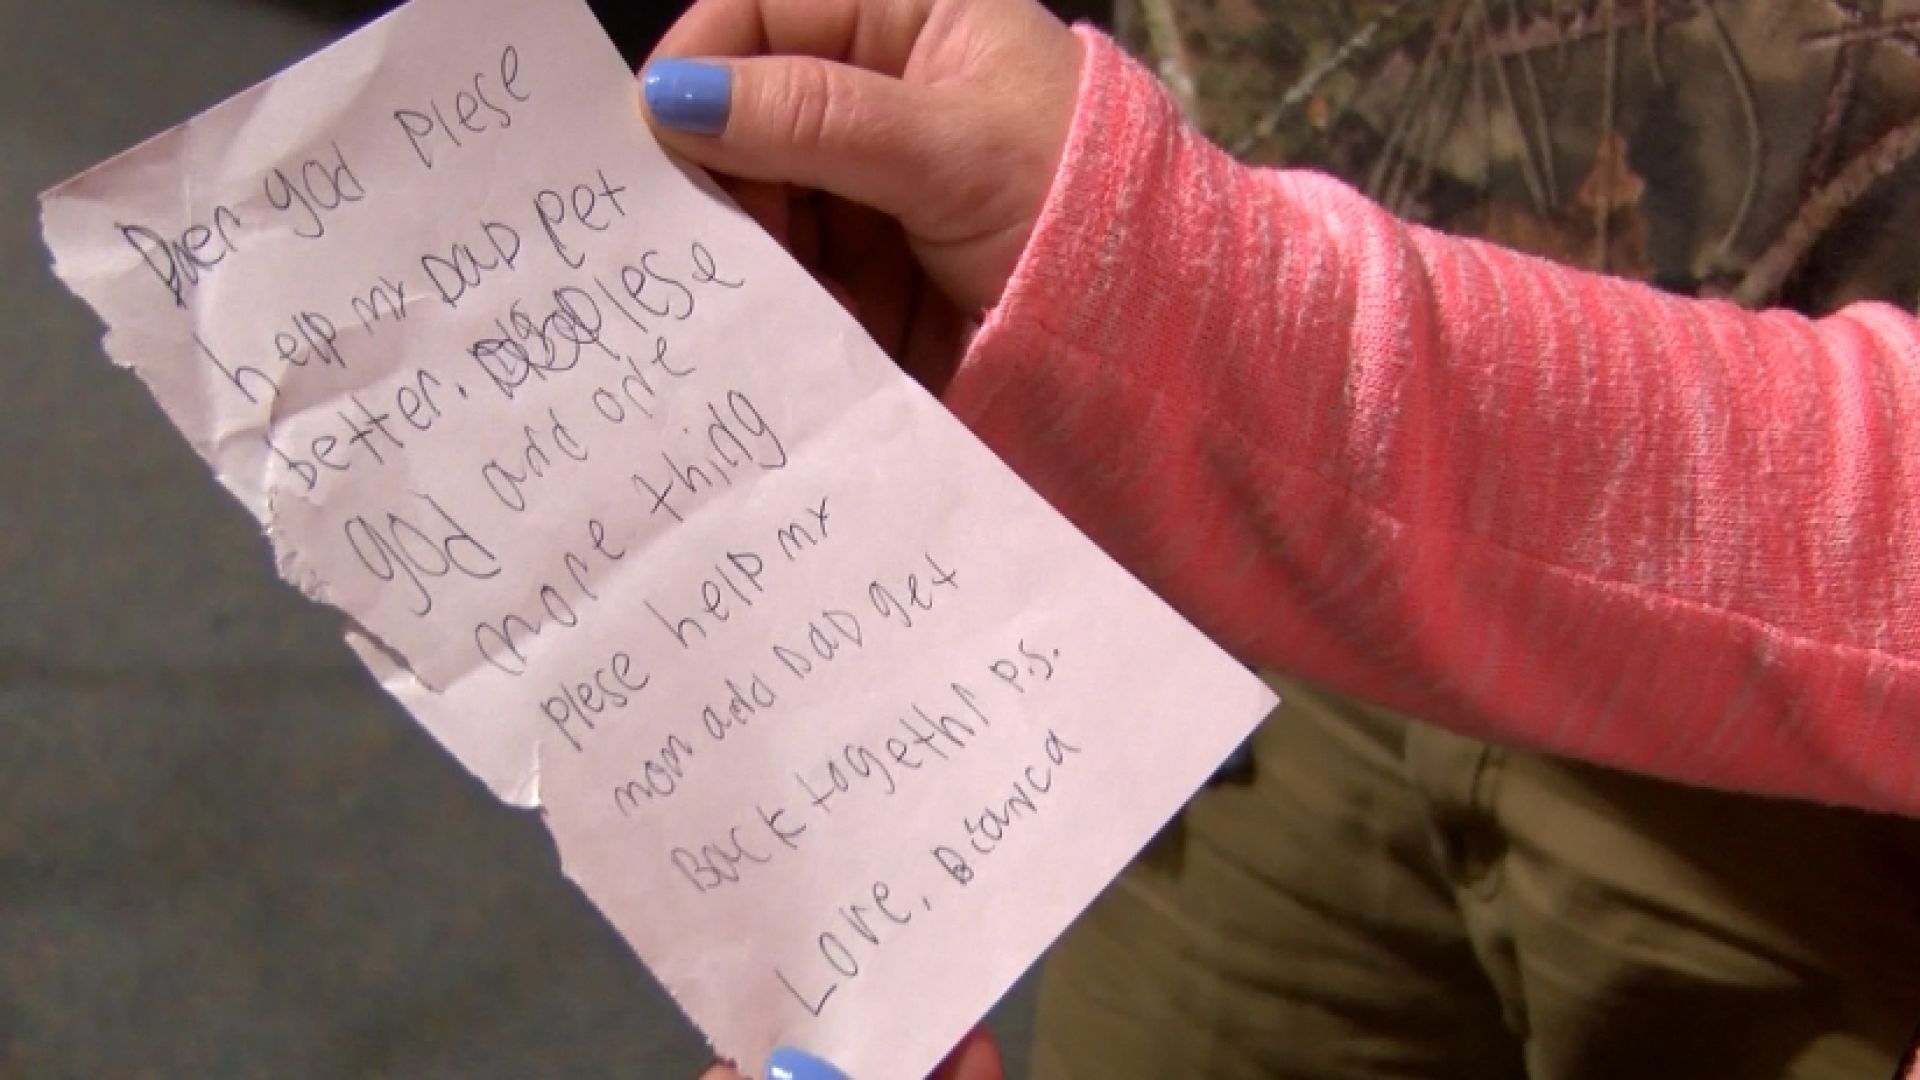 Daer god Plese
help my DaD get
better. Plese
god and one
more thing
plese help my
mom and DaD get
Back togethr P.S.
Love, Bianca